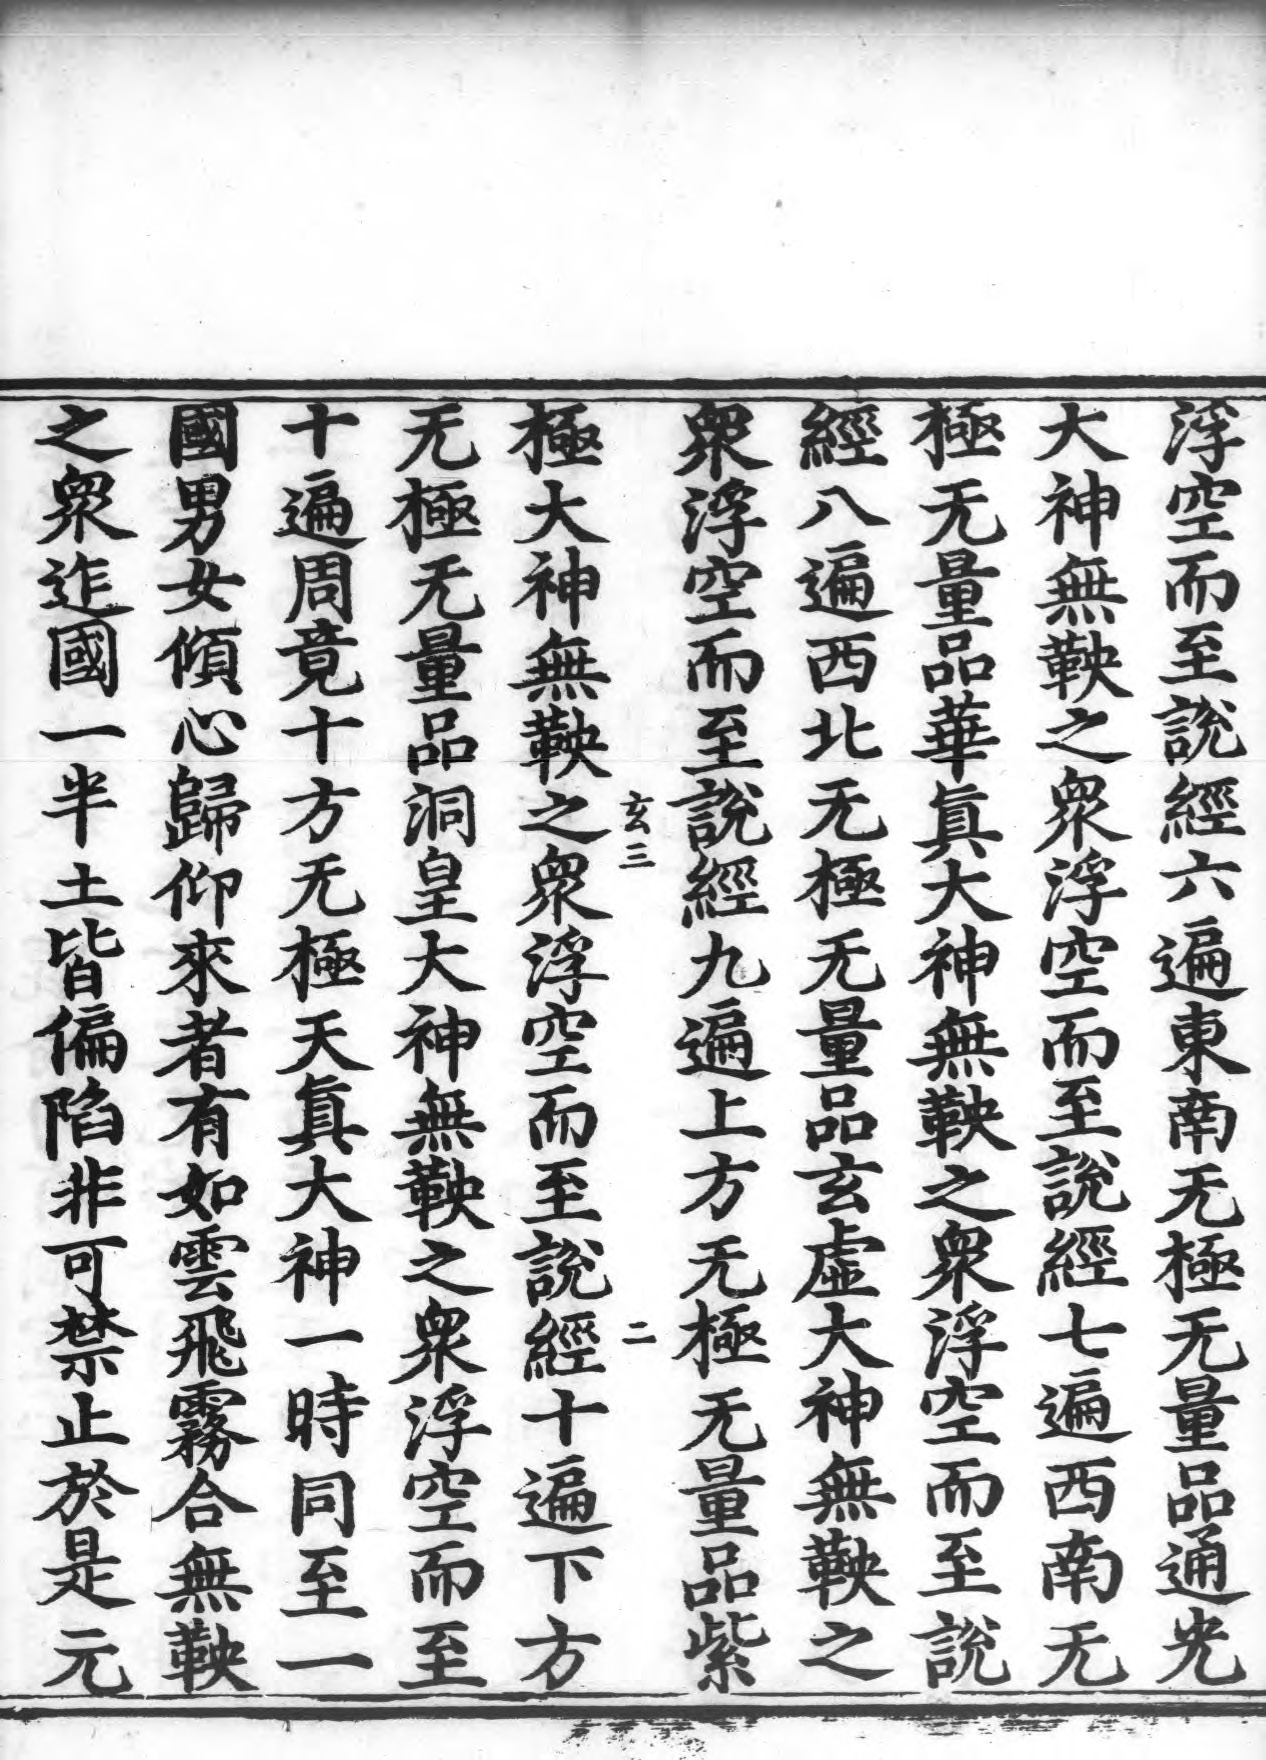 浮空而至說經六遍東南无極无量品通光
大神無鞅之衆浮空而至說經七遍西南无
極无量品華眞大神無鞅之衆浮空而至說
經八遍西北无極无量品玄虛大神無鞅之
衆浮空而至說經九遍上方无極无量品紫
玄三 二
極大神無鞅之衆浮空而至說經十遍下方
无極无量品洞皇大神無鞅之衆浮空而至
十遍周竟十方无極天眞大神一時同至一
國男女傾心歸仰來者有如雲飛霧合無鞅
之衆迮國一半土皆偏陷非可禁止於是元